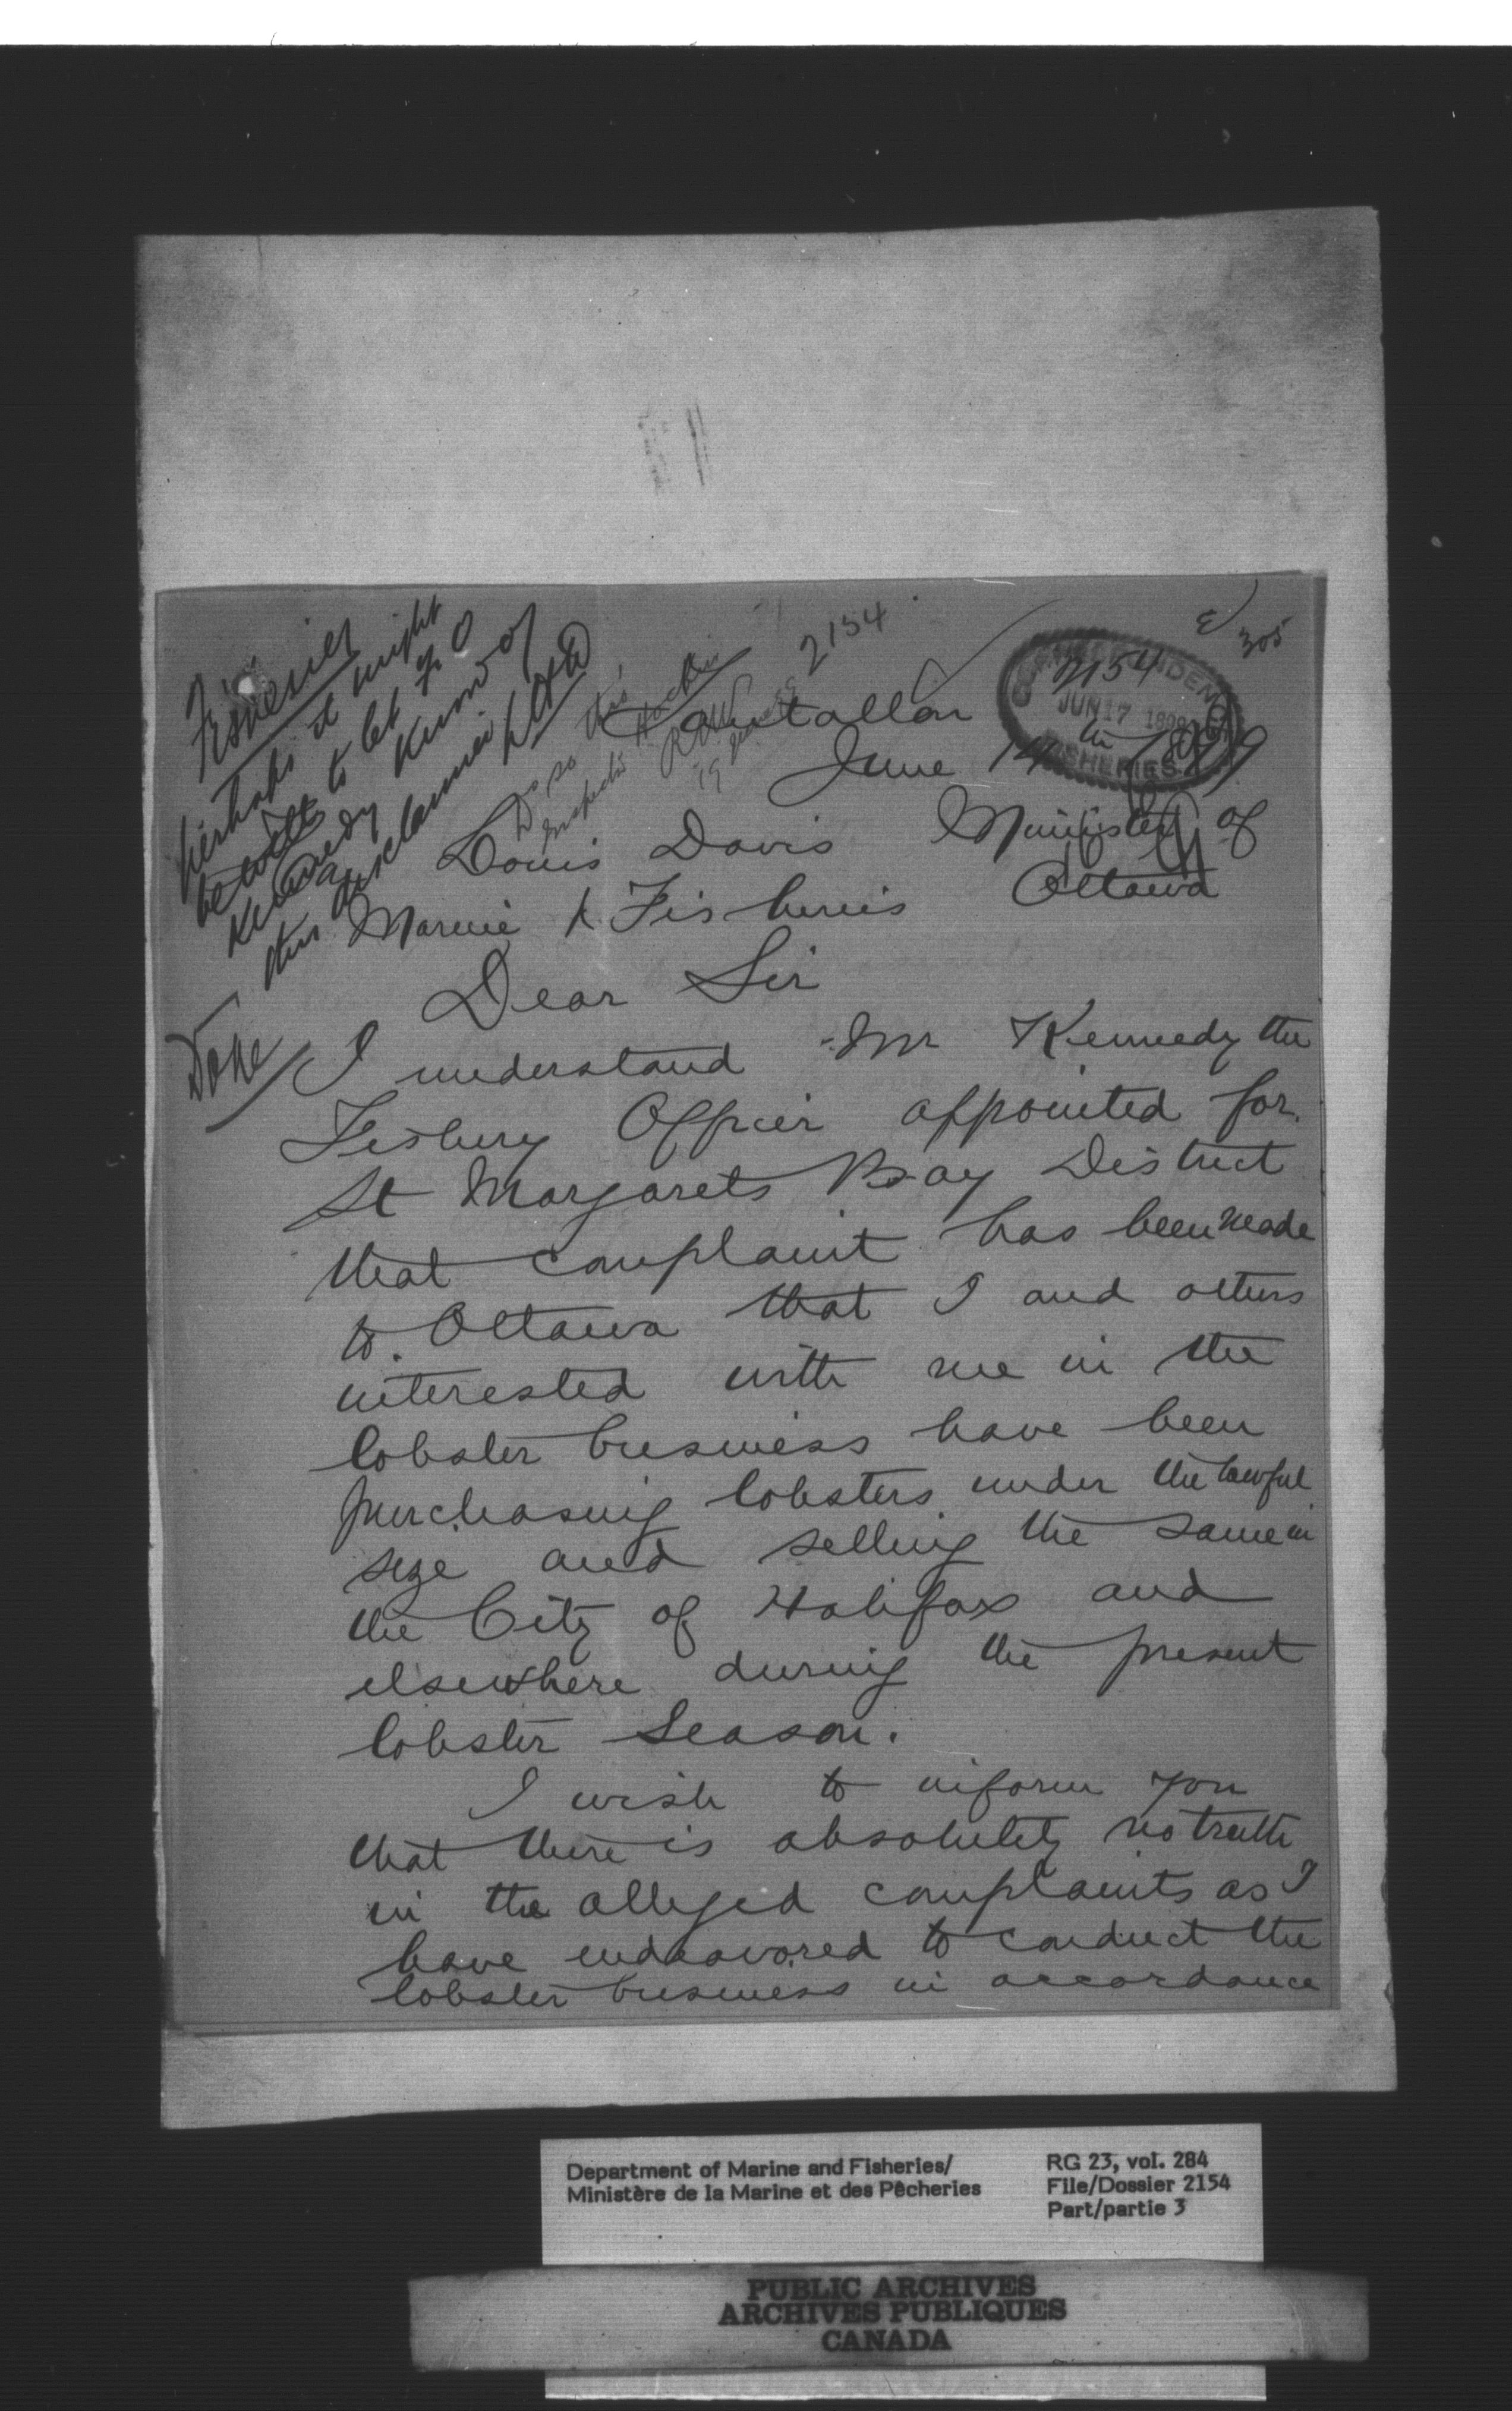 Fisheries
perhaps it might
be well to let F O
Kennedy know of
this disclaimer
Done
Do so thro
Inspector Hockin
2154
305
CORRESPONDENCE
2154
JUN 17 1899
FISHERIES
Tantallon
June 14th 1899
Louis Davis Minister of
Marine & Fisheries Ottawa
Dear Sir
I understand Mr Kennedy the
Fishery Officer appointed for
St Margarets Bay District
that complaint has been made
to Ottawa that I and others
interested with me in the
lobster business have been
purchasing lobsters under the lawful
size and selling the same in
the City of Halifax and
elsewhere during the present
lobster season.
I wish to inform you
that there is absolutely no truth
in the alleged complaints as I
have endeavored to conduct the
lobster business in accordance
Department of Marine and Fisheries/
Ministère de la Marine et des Pêcheries
RG 23, vol. 284
File/Dossier 2154
Part/partie 3
PUBLIC ARCHIVES
ARCHIVES PUBLIQUES
CANADA